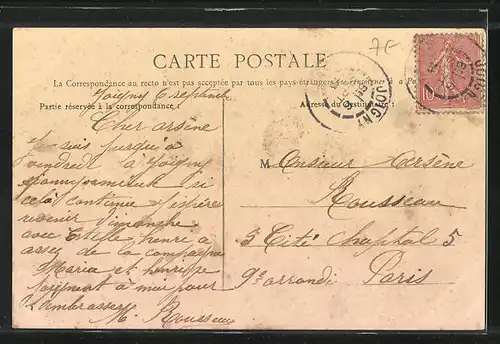 7E
CARTE POSTALE
La Correspondance au recto n'est pas acceptée par tous les pays étrangers (se renseigner à la Po
Joigny
Partie réservée à la correspondance:
Adresse du destinataire:
JOIGNY
10
Cher arsène
je suis jusqu'a
vendredi a Joigny
si
celà continue j'espère
revenir Dimanche
avec Estelle,
assez de la compagne
Maria et
se joignent à moi pour
t'embrasser
M. Rousseau
M Monsieur Arsène
Rousseau
5 Cité Chaptal 5
9e arrondi Paris